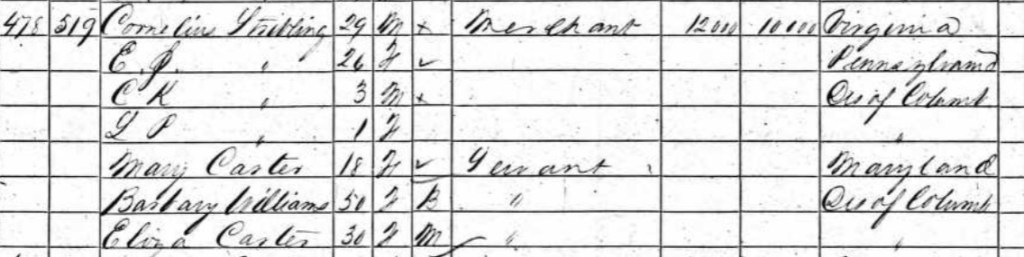 478 519 Cornelius Stribling 29 M Merchant 12000 10000 Virginia
E. P. " 26 F Pennsylvania
C K " 3 M Dis of Columb
L P " 1 F "
Mary Carter 18 F Servant Maryland
Barbary Williams 50 F B " Dis of Columb
Eliza Carter 30 F M " "